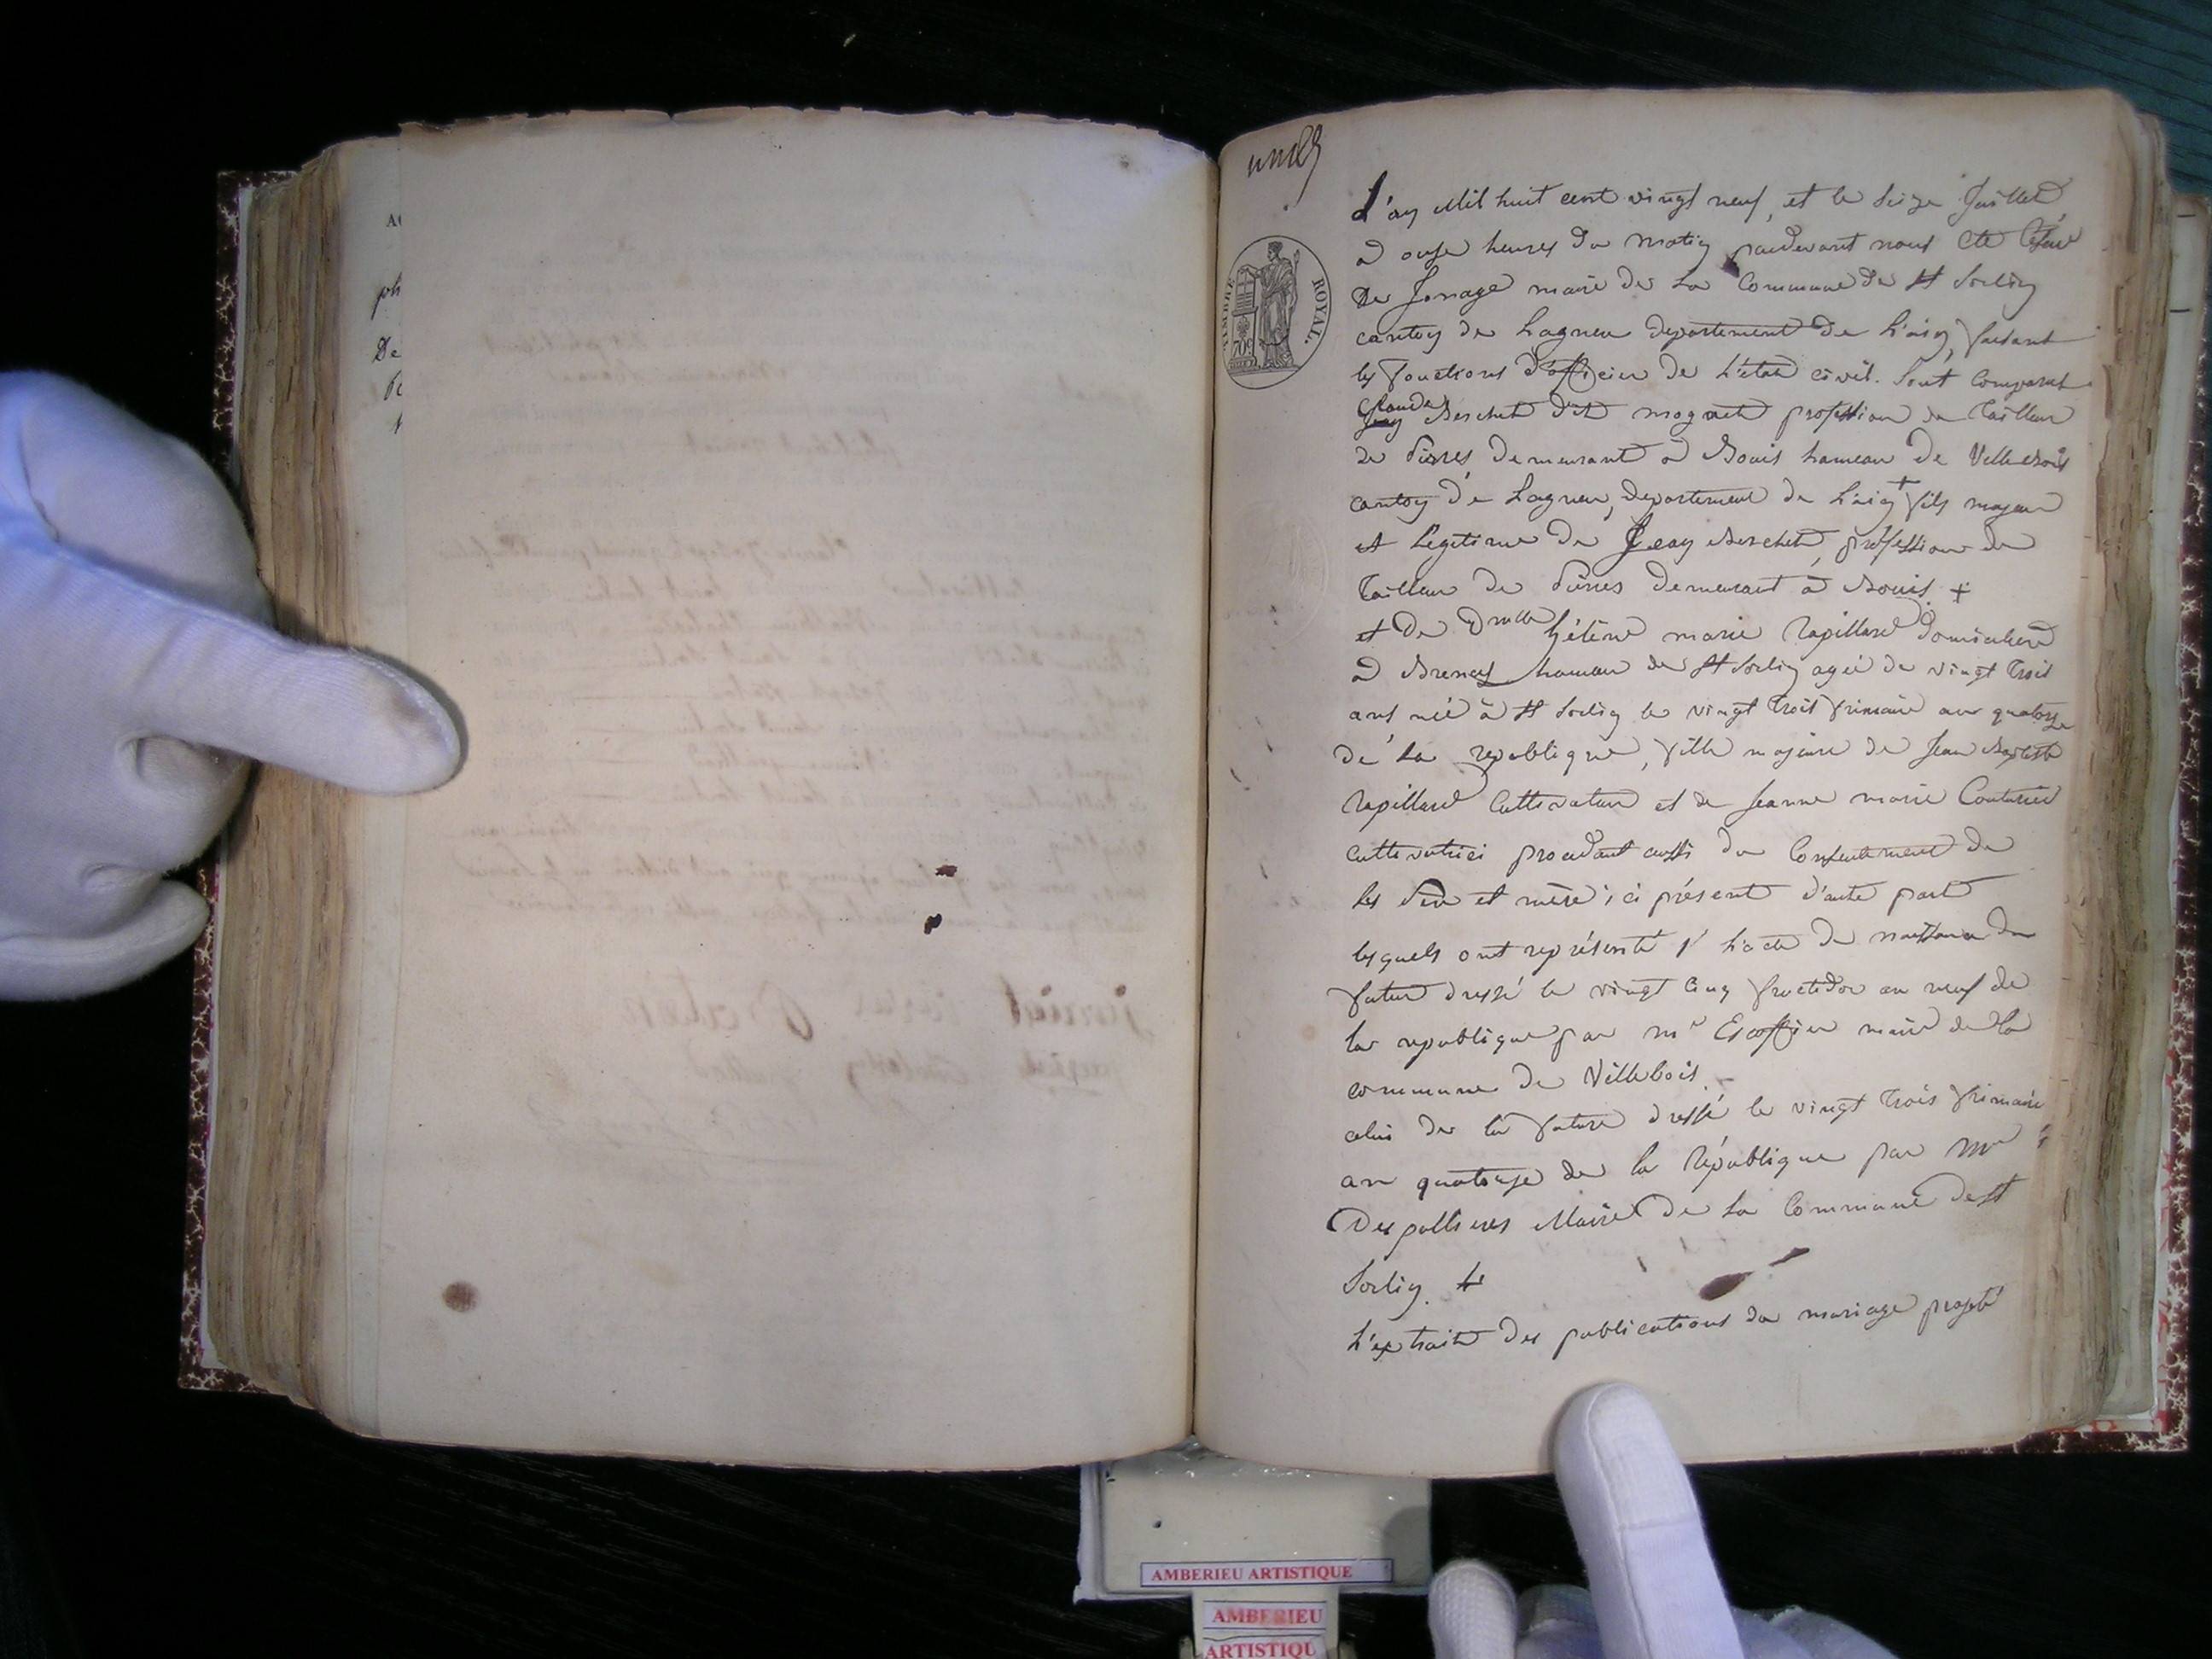 L'an Mil huit cent vingt neuf, et le seize Juillet
à onze heures du matin pardevant nous Cte César
De Jonage maire de La Commune de St Sorlin
canton de Lagneu departement de L'ain, faisant
les fonctions d'officier de L'état civil. Sont comparut
Claude
Jean Berchet dit magnet profession de Tailleur
de Pierres, demeurant à Bouis hameau de Villebois
canton de Lagneu, departement de L'ain + fils majeur
et Legitime de Jean Berchet, profession de
Tailleur de Pierres demeurant à Bouis. +
et De Dmelle hélène marie Rapillard domiciliée
à Brenaz hameau de St Sorlin agée de vingt trois
ans née à St Sorlin le vingt trois frimaire an quatorze
de La republique, fille majeure de Jean Baptiste
Rapillard Cultivateur et de Jeanne marie Couturier
cultivatrice procedant aussi du Consentement de
ses Père et mère ici présent d'autre part
lesquels ont représenté 1° L'acte de naissance du
futur dressé le vingt Cinq fructidor an neuf de
la republique par mr Escoffier maire de La
commune de Villebois.
celui de la future dressé le vingt trois frimaire
an quatorze de la République par Mr
Despallieres Maire De La Commune de St
Sorlin.
L'extrait des publications du mariage projeté
TIMBRE ROYAL.
70c
De
AMBERIEU ARTISTIQUE
AMBERIEU
ARTISTIQU